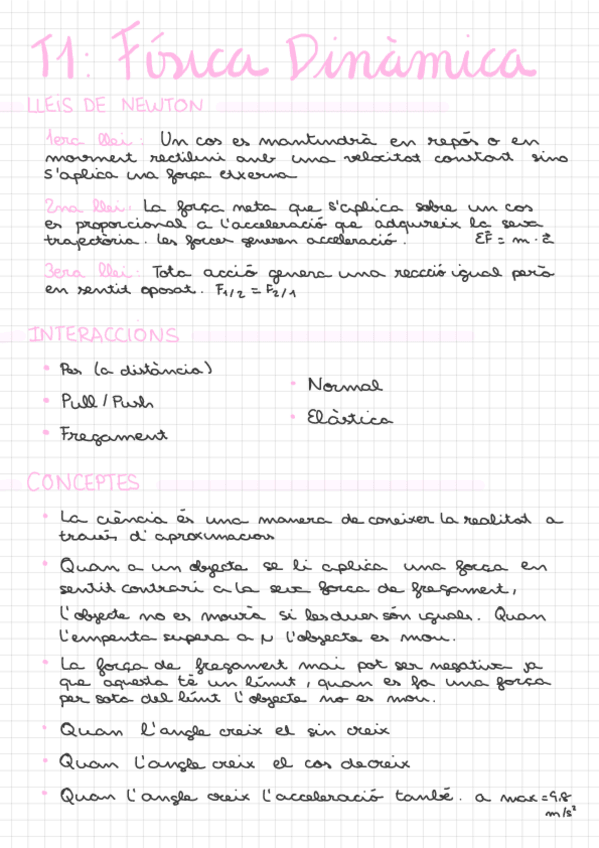 T1: Física Dinàmica
LLEIS DE NEWTON
1era llei: Un cos es mantindrà en repós o en
moviment rectilini amb una velocitat constant sino
s'aplica una força externa
2na llei: La força neta que s'aplica sobre un cos
es proporcional a l'acceleració que adquireix la seva
trajectòria. les forces generen acceleració. ΣF = m · a
3era llei: Tota acció genera una reacció igual però
en sentit oposat. F1/2 = F2/1
INTERACCIONS
• Pes (a distància)
• Normal
• Pull / Push
• Elàstica
• Fregament
CONCEPTES
• La ciència és una manera de coneixer la realitat a
través d'aproximacions
• Quan a un objecte se li aplica una força en
sentit contrari a la seva força de fregament,
l'objecte no es mourà si les dues són iguals. Quan
l'empenta supera a μ l'objecte es mou.
• La força de fregament mai pot ser negativa ja
que aquesta té un límit, quan es fa una força
per sota del límit l'objecte no es mou.
• Quan l'angle creix el sin creix
• Quan l'angle creix el cos decreix
• Quan l'angle creix l'acceleració també. a max = 9,8
m/s²